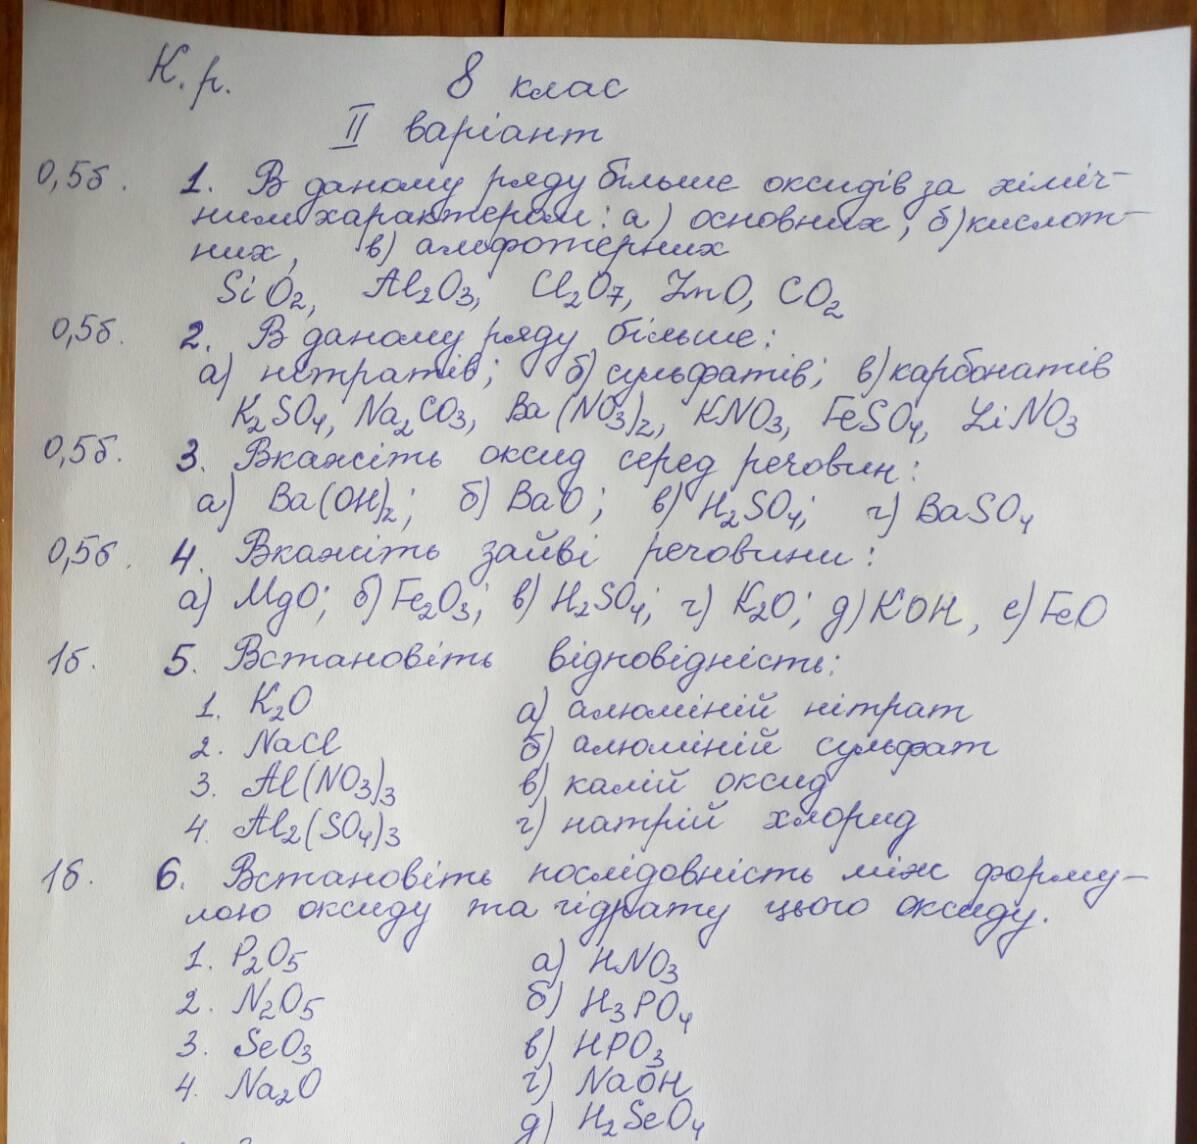 К.р. 8 клас
II варіант
0,5б. 1. В даному ряду більше оксидів за хіміч-
ним характером: а) основних, б) кислот-
них, в) амфотерних
SiO2, Al2O3, Cl2O7, ZnO, CO2
0,5б. 2. В даному ряду більше:
а) нітратів; б) сульфатів; в) карбонатів
K2SO4, Na2CO3, Ba(NO3)2, KNO3, FeSO4, LiNO3
0,5б. 3. Вкажіть оксид серед речовин:
а) Ba(OH)2; б) BaO; в) H2SO4; г) BaSO4
0,5б. 4. Вкажіть зайві речовини:
а) MgO; б) Fe2O3; в) H2SO4; г) K2O; д) KOH, е) FeO
1б. 5. Встановіть відповідність:
1. K2O а) алюміній нітрат
2. NaCl б) алюміній сульфат
3. Al(NO3)3 в) калій оксид
4. Al2(SO4)3 г) натрій хлорид
1б. 6. Встановіть послідовність між форму-
лою оксиду та гідрату цього оксиду.
1. P2O5 а) HNO3
2. N2O5 б) H3PO4
3. SeO3 в) HPO3
4. Na2O г) NaOH
д) H2SeO4